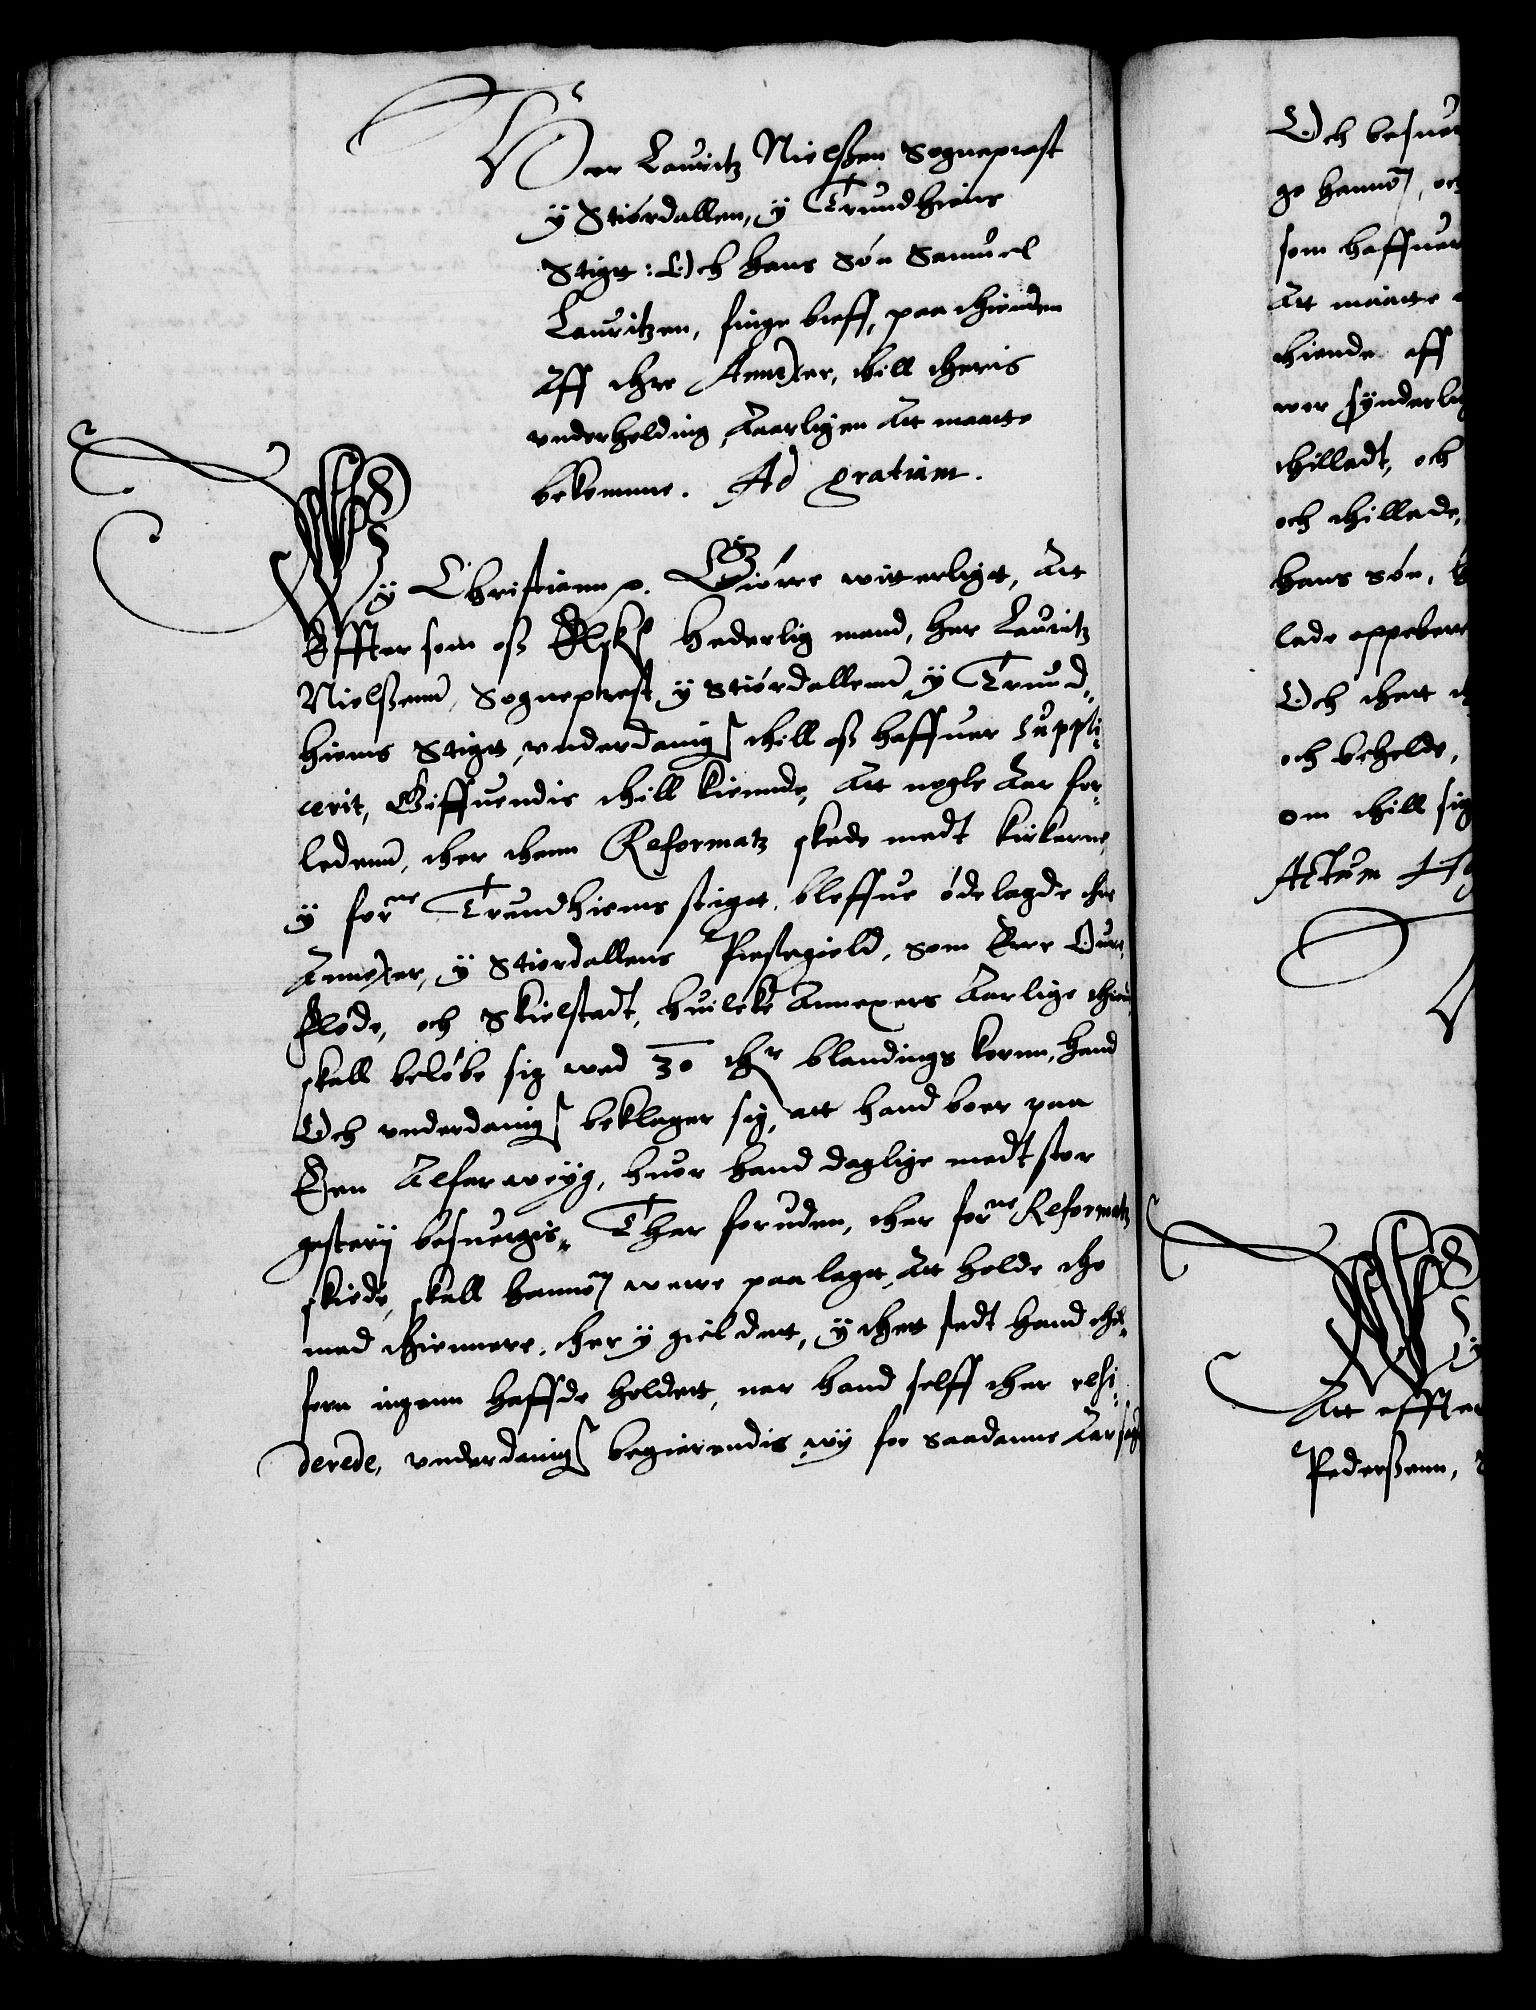 Her Lauritz Nielßen Sogneprest
ÿ Stiørdallen, ÿ Trundhiems
Stigt: Och hans Søn Samuel
Lauritzen, finge breff, paa thienden
Aff thre Annexer, thill theris
vnderholding Aarligen Att maatte
bekomme. Ad gratiam.
Wÿ Christiann p. Giørre witterligt, Att
Effter som oß Elsk: hederlig mand, her Lauritz
Nielßenn Sogneprest ÿ Stiørdallenn ÿ Trund-
hiems Stigt, vnderdanigst thill oß haffuer suppli-
cerit, Giffuendis thill kiennde, Att nogle Aar for-
ledenn, ther thenn Reformatz skede medt kirkerne
ÿ forne Trundhiems stigt, bleffue ødelagde thre
Annexer, ÿ Stiørdallens Prestegield, som Ere
Flode, och Skielstadt, huilcke Annexers Aarlige thiende
skall beløbe sig wed 30 thr blandings kornn, hand
Och vnderdanigst beklager sig, att hand boer paa
Een Alfarweÿg, huor hand daglige medt stor
gesterÿ besuergis, Ther foruden, ther forne Reformatz
skiede, skall hannom were paalagt, Att holde tho
med thiennere, ther ÿ gieldett, ÿ thett sted hand till-
forn ingenn haffde holdett, nar hand selff ther resi-
derede, vnderdanigst begierendis wÿ for saadanne Aarsag
Och besuer
ge hannom, och
som haffuer
Att maatte
thiende aff
wor synderlig
thilladt, och
och thillade,
hans søn,
lade oppeberre
Och thett
och beholde,
om thill sig
Actum
Wÿ
Att effter
Pederßenn,